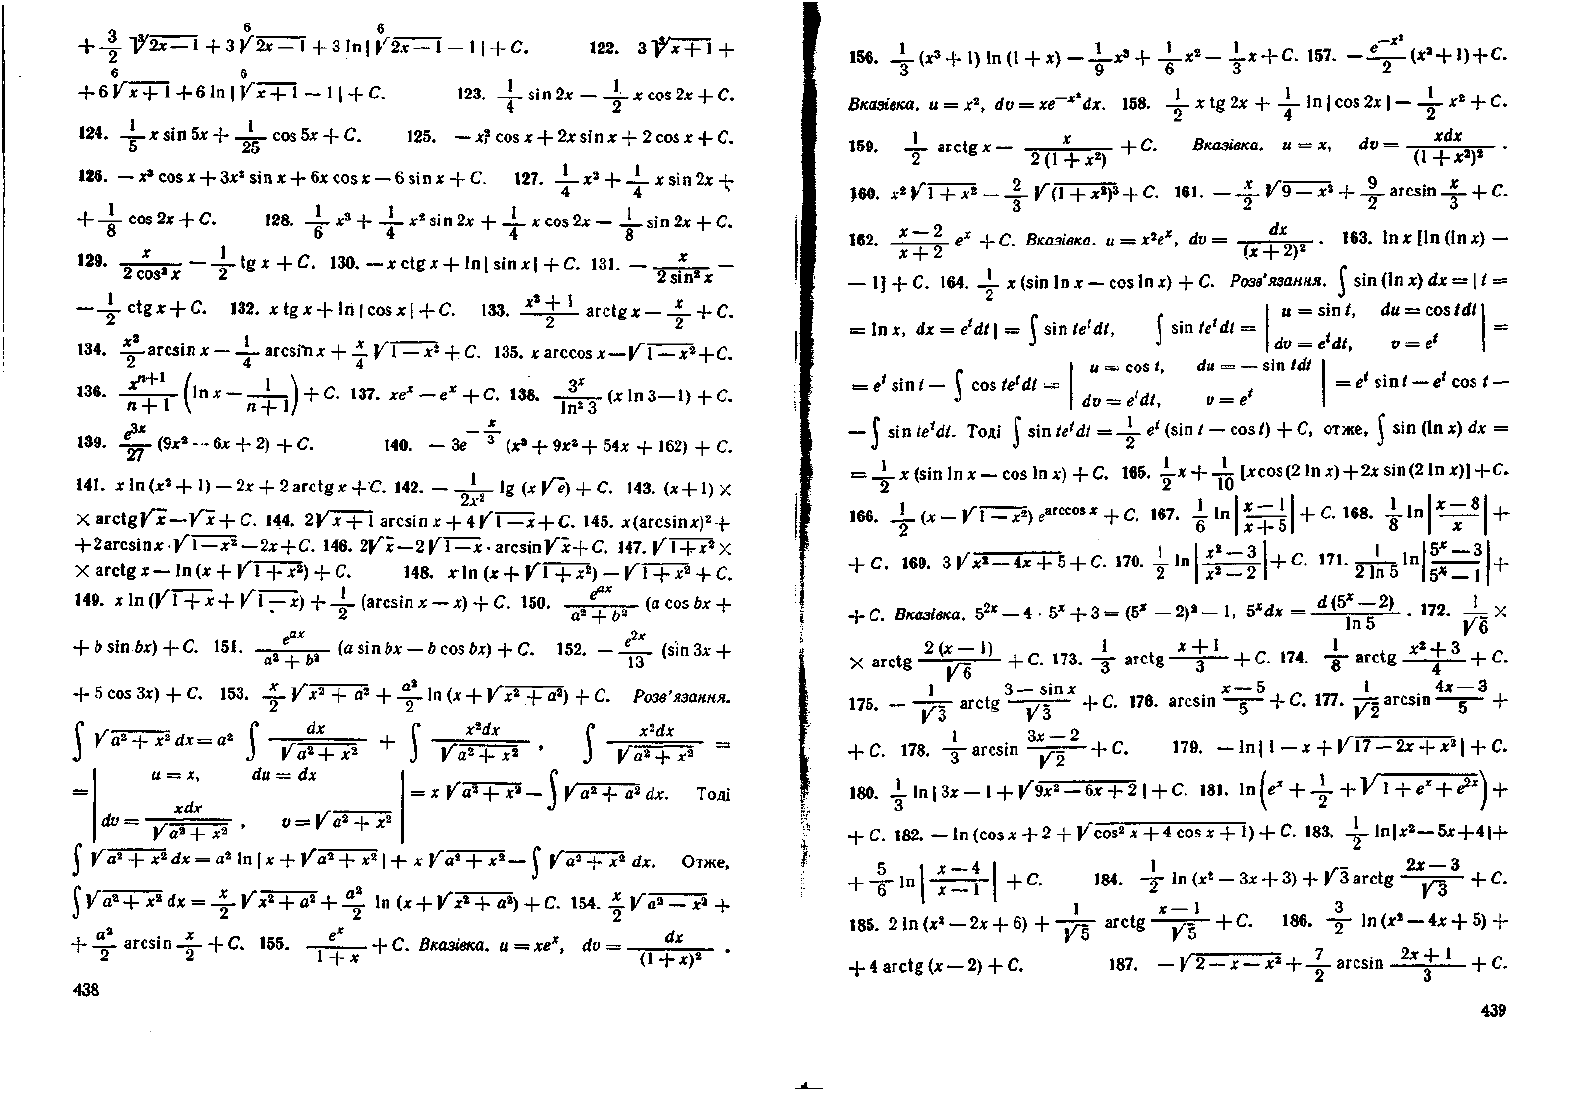 + 3/2 ∛(2x−1) + 3 ⁶√(2x−1) + 3 ln | ⁶√(2x−1) − 1 | + C. 122. 3 ∛(x+1) +
+ 6 ⁶√(x+1) + 6 ln | ⁶√(x+1) − 1 | + C. 123. 1/4 sin 2x − 1/2 x cos 2x + C.
124. 1/5 x sin 5x + 1/25 cos 5x + C. 125. − x² cos x + 2x sin x + 2 cos x + C.
126. − x³ cos x + 3x² sin x + 6x cos x − 6 sin x + C. 127. 1/4 x² + 1/4 x sin 2x +
+ 1/8 cos 2x + C. 128. 1/6 x³ + 1/4 x² sin 2x + 1/4 x cos 2x − 1/8 sin 2x + C.
129. x/(2 cos² x) − 1/2 tg x + C. 130. − x ctg x + ln | sin x | + C. 131. − x/(2 sin² x) −
− 1/2 ctg x + C. 132. x tg x + ln | cos x | + C. 133. (x² + 1)/2 arctg x − x/2 + C.
134. x²/2 arcsin x − 1/4 arcsin x + x/4 √(1 − x²) + C. 135. x arccos x − √(1 − x²) + C.
136. xⁿ⁺¹/(n + 1) (ln x − 1/(n + 1)) + C. 137. xeˣ − eˣ + C. 138. 3ˣ/ln² 3 (x ln 3 − 1) + C.
139. e³ˣ/27 (9x² − 6x + 2) + C. 140. − 3e^(−x/3) (x³ + 9x² + 54x + 162) + C.
141. x ln (x² + 1) − 2x + 2 arctg x + C. 142. − 1/(2x²) lg (x √e) + C. 143. (x + 1) ×
× arctg √x − √x + C. 144. 2√(x + 1) arcsin x + 4√(1 − x) + C. 145. x (arcsin x)² +
+ 2 arcsin x · √(1 − x²) − 2x + C. 146. 2√x − 2√(1 − x) · arcsin √x + C. 147. √(1 + x²) ×
× arctg x − ln (x + √(1 + x²)) + C. 148. x ln (x + √(1 + x²)) − √(1 + x²) + C.
149. x ln (√(1 + x) + √(1 − x)) + 1/2 (arcsin x − x) + C. 150. eᵃˣ/(a² + b²) (a cos bx +
+ b sin bx) + C. 151. eᵃˣ/(a² + b²) (a sin bx − b cos bx) + C. 152. − e²ˣ/13 (sin 3x +
+ 5 cos 3x) + C. 153. x/2 √(x² + a²) + a²/2 ln (x + √(x² + a²)) + C. Розв’язання.
∫ √(a² + x²) dx = a² ∫ dx/√(a² + x²) + ∫ x²dx/√(a² + x²), ∫ x²dx/√(a² + x²) =
= | u = x, du = dx
dv = xdx/√(a² + x²), v = √(a² + x²) | = x √(a² + x²) − ∫ √(a² + a²) dx. Тоді
∫ √(a² + x²) dx = a² ln | x + √(a² + x²) | + x √(a² + x²) − ∫ √(a² + x²) dx. Отже,
∫ √(a² + x²) dx = x/2 √(x² + a²) + a²/2 ln (x + √(x² + a²)) + C. 154. x/2 √(a² − x²) +
+ a²/2 arcsin x/2 + C. 155. eˣ/(1 + x) + C. Вказівка. u = xeˣ, dv = dx/(1 + x)².
438
156. 1/3 (x³ + 1) ln (1 + x) − 1/9 x³ + 1/6 x² − 1/3 x + C. 157. − e^(−x²)/2 (x² + 1) + C.
Вказівка. u = x², dv = xe^(−x²)dx. 158. 1/2 x tg 2x + 1/4 ln | cos 2x | − 1/2 x² + C.
159. 1/2 arctg x − x/(2 (1 + x²)) + C. Вказівка. u = x, dv = xdx/(1 + x²)².
160. x² √(1 + x²) − 2/3 √((1 + x²)³) + C. 161. − x/2 √(9 − x²) + 9/2 arcsin x/3 + C.
162. (x − 2)/(x + 2) eˣ + C. Вказівка. u = x²eˣ, dv = dx/(x + 2)². 163. ln x [ln (ln x) −
− 1] + C. 164. 1/2 x (sin ln x − cos ln x) + C. Розв’язання. ∫ sin (ln x) dx = | t =
= ln x, dx = eᵗdt | = ∫ sin teᵗdt, ∫ sin teᵗdt = | u = sin t, du = cos tdt
dv = eᵗdt, v = eᵗ | =
= eᵗ sin t − ∫ cos teᵗdt = | u = cos t, du = − sin tdt
dv = eᵗdt, v = eᵗ | = eᵗ sin t − eᵗ cos t −
− ∫ sin teᵗdt. Тоді ∫ sin teᵗdt = 1/2 eᵗ (sin t − cos t) + C, отже, ∫ sin (ln x) dx =
= 1/2 x (sin ln x − cos ln x) + C. 165. 1/2 x + 1/10 [x cos (2 ln x) + 2x sin (2 ln x)] + C.
166. 1/2 (x − √(1 − x²)) e^(arccos x) + C. 167. 1/6 ln | (x − 1)/(x + 5) | + C. 168. 1/8 ln | (x − 8)/x | +
+ C. 169. 3√(x² − 4x + 5) + C. 170. 1/2 ln | (x² − 3)/(x² − 2) | + C. 171. 1/(2 ln 5) ln | (5ˣ − 3)/(5ˣ − 1) | +
+ C. Вказівка. 5²ˣ − 4 · 5ˣ + 3 = (5ˣ − 2)² − 1, 5ˣdx = d (5ˣ − 2)/ln 5. 172. 1/√6 ×
× arctg 2 (x − 1)/√6 + C. 173. 1/3 arctg (x + 1)/3 + C. 174. 1/8 arctg (x² + 3)/4 + C.
175. − 1/√3 arctg (3 − sin x)/√3 + C. 176. arcsin (x − 5)/5 + C. 177. 1/√2 arcsin (4x − 3)/5 +
+ C. 178. 1/3 arcsin (3x − 2)/√2 + C. 179. − ln | 1 − x + √(17 − 2x + x²) | + C.
180. 1/3 ln | 3x − 1 + √(9x² − 6x + 2) | + C. 181. ln (eˣ + 1/2 + √(1 + eˣ + e²ˣ)) +
+ C. 182. − ln (cos x + 2 + √(cos² x + 4 cos x + 1)) + C. 183. 1/2 ln | x² − 5x + 4 | +
+ 5/6 ln | (x − 4)/(x − 1) | + C. 184. 1/2 ln (x² − 3x + 3) + √3 arctg (2x − 3)/√3 + C.
185. 2 ln (x² − 2x + 6) + 1/√5 arctg (x − 1)/√5 + C. 186. 3/2 ln (x² − 4x + 5) +
+ 4 arctg (x − 2) + C. 187. − √(2 − x − x²) + 7/2 arcsin (2x + 1)/3 + C.
439